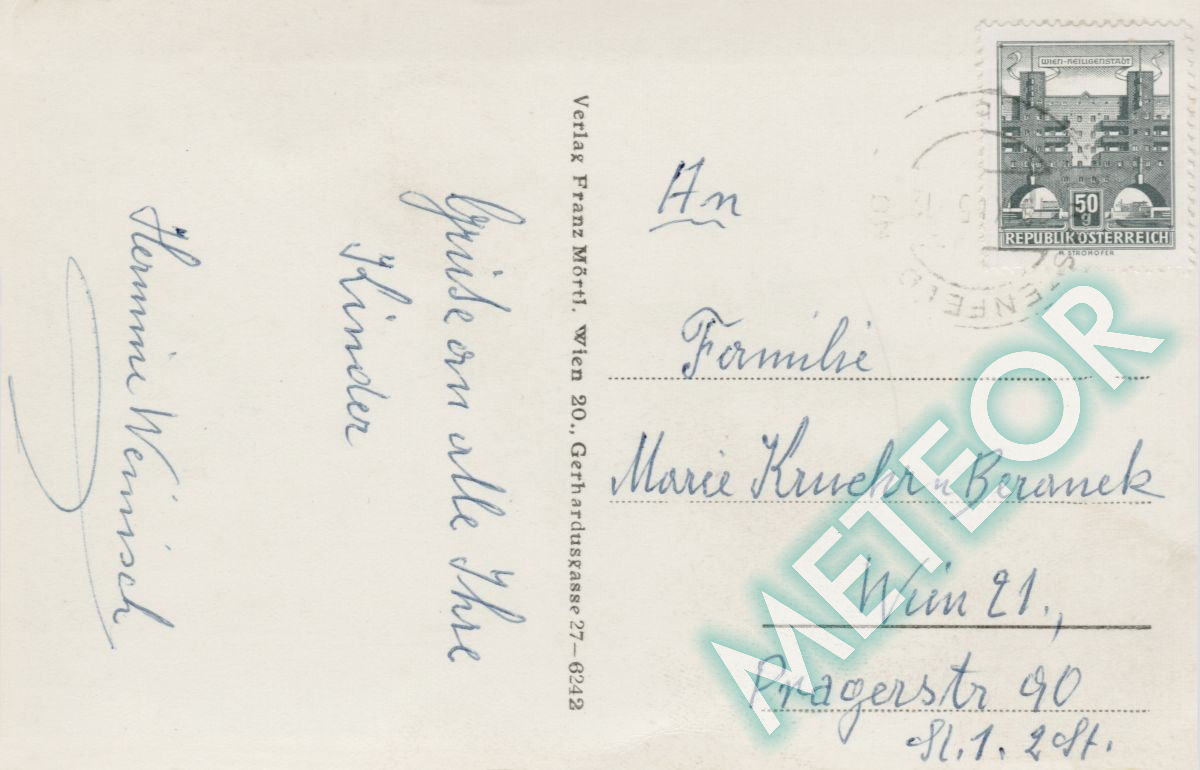 Grüße an alle Ihre
Kinder
Hermine Weinisch
Verlag Franz Mörtl, Wien 20., Gerhardusgasse 27—6242
WIEN-HEILIGENSTADT
50
g
REPUBLIK ÖSTERREICH
An
Familie
Marie Kruehr u Beranek
Wien 21.,
Pragerstr 90
St. 1. 2 St.
METEOR